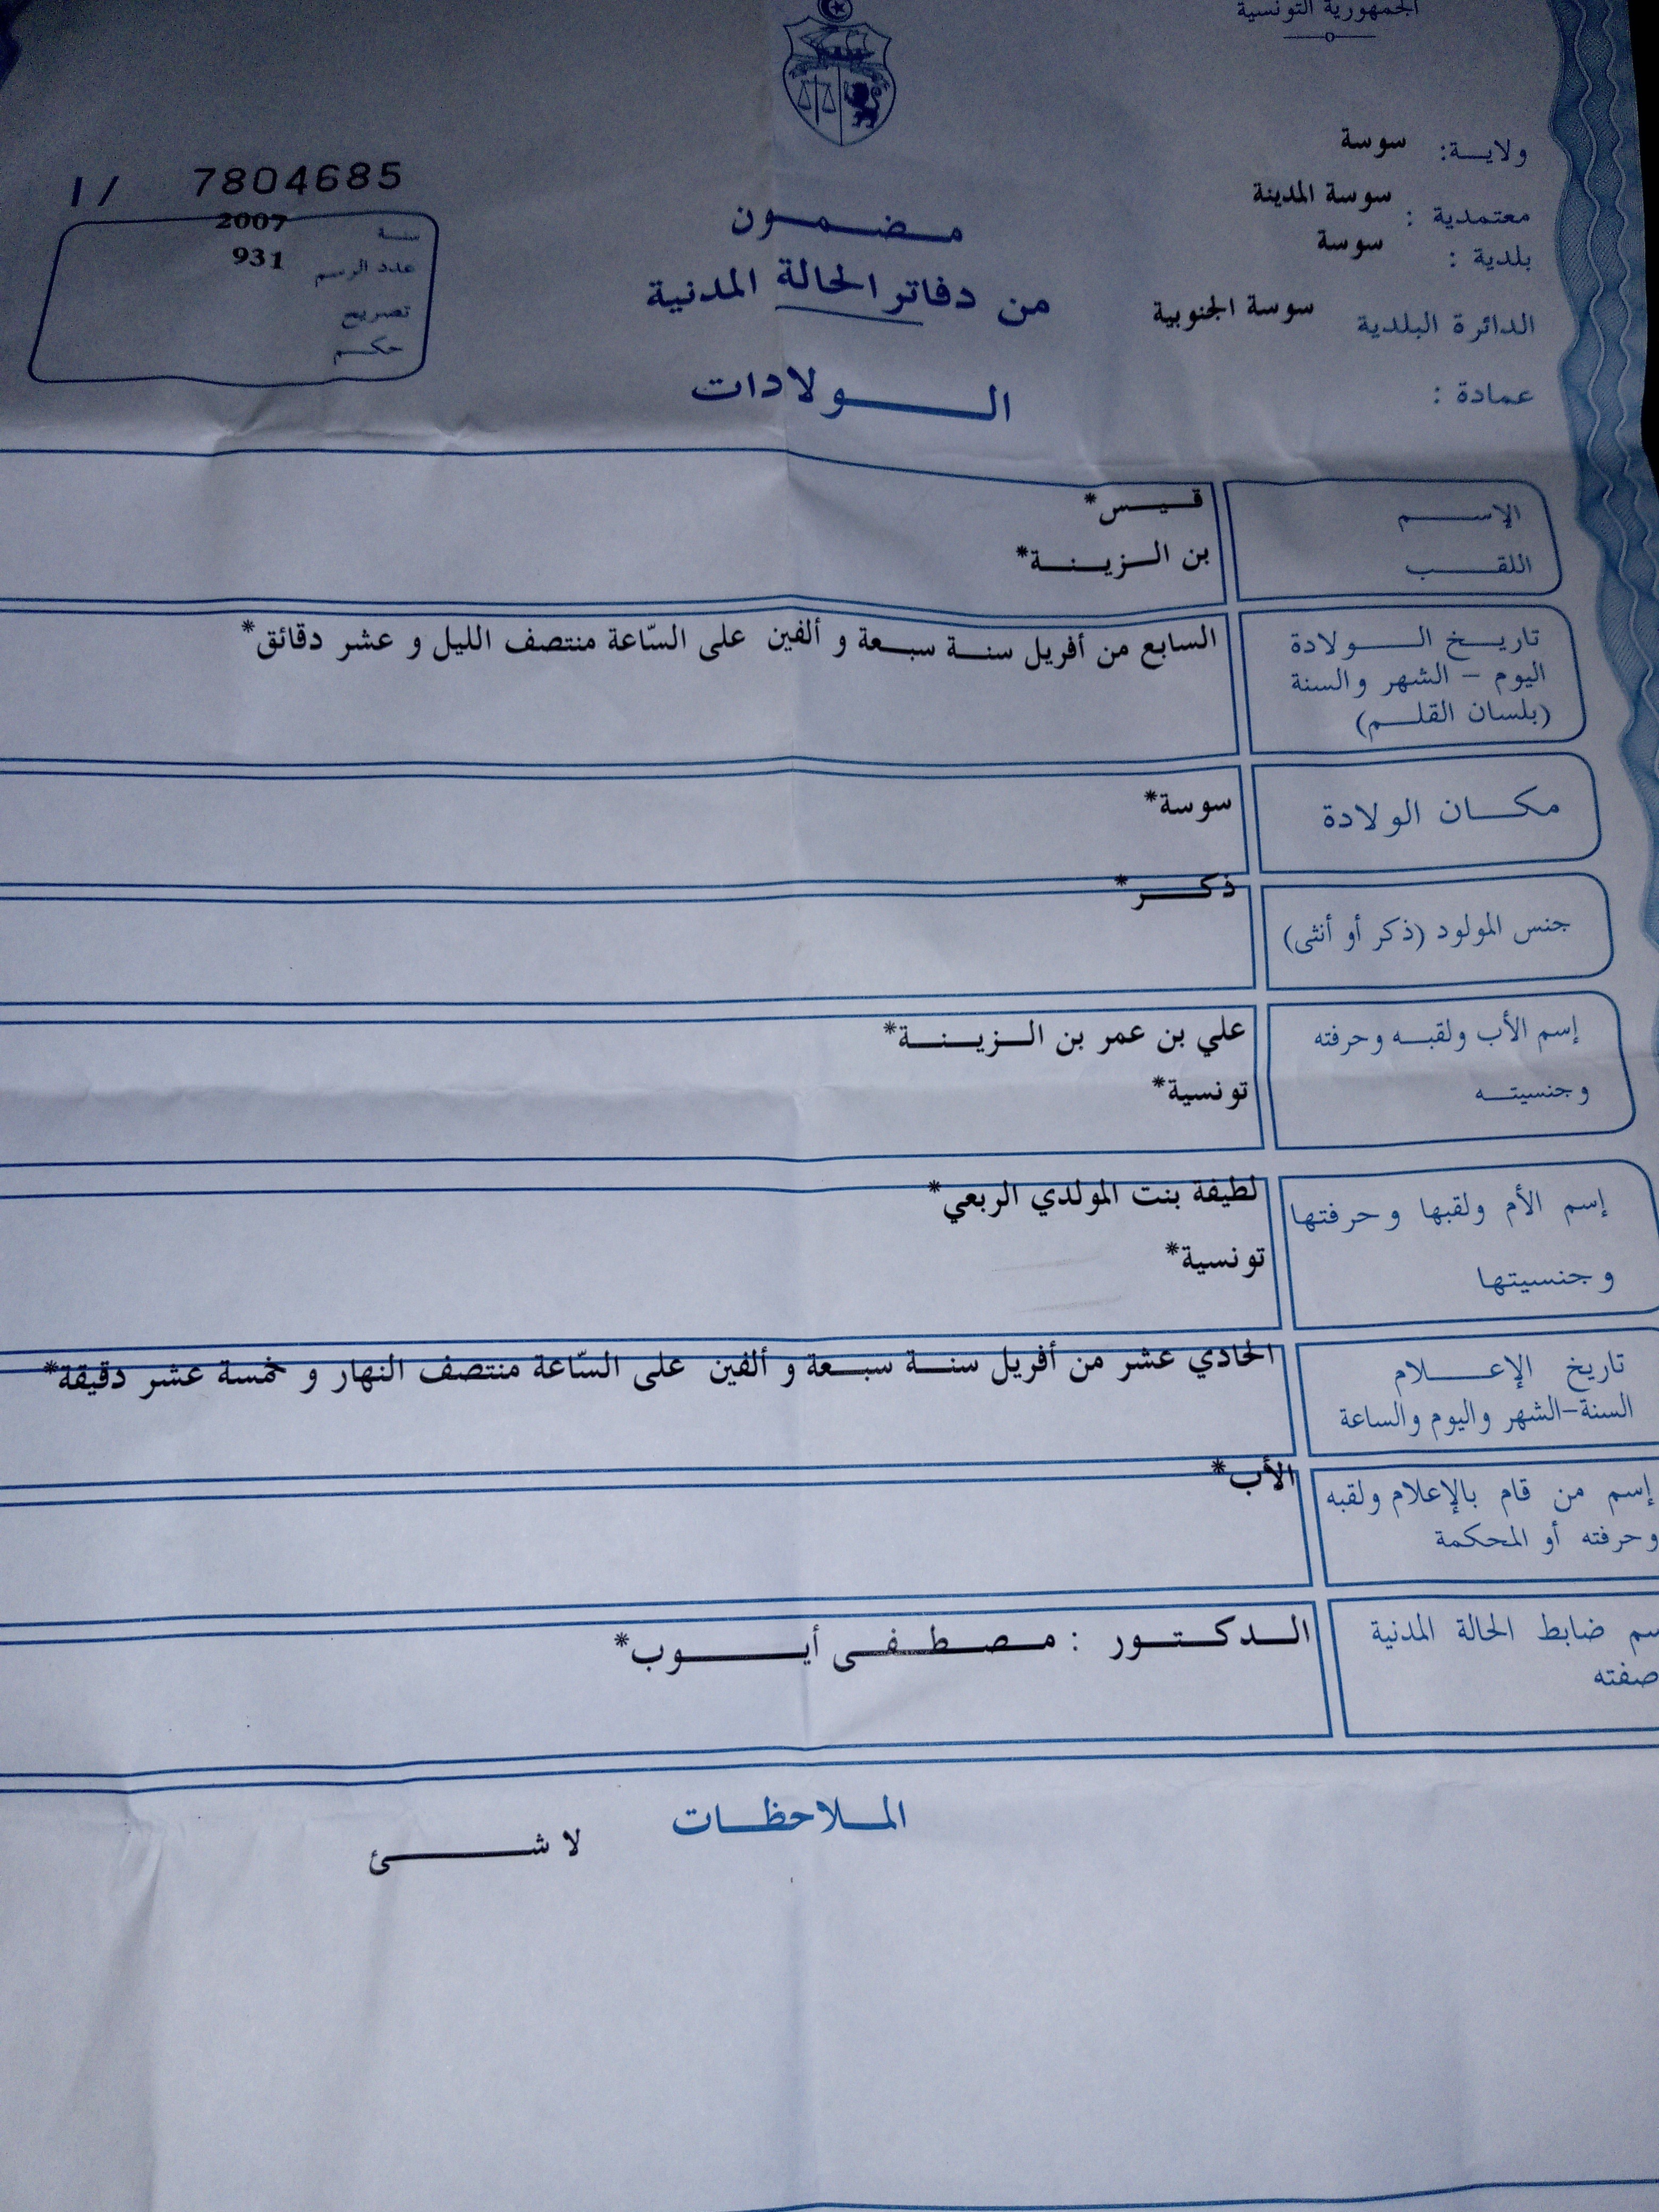 الجمهورية التونسية
ولايـة: سوسة
معتمدية : سوسة المدينة
بلدية : سوسة
الدائرة البلدية سوسة الجنوبية
عمادة :
مضمون
من دفاتر الحالة المدنية
الولادات
7804685 / 1
سنة 2007
عدد الرسم 931
تصريح
حكم
الإسم قيس*
اللقب بن الزينة*
تاريخ الولادة السابع من أفريل سنة سبعة و ألفين على السّاعة منتصف الليل و عشر دقائق*
اليوم - الشهر والسنة
(بلسان القلم)
مكان الولادة سوسة*
جنس المولود (ذكر أو أنثى) ذكر*
إسم الأب ولقبه وحرفته علي بن عمر بن الزينة*
وجنسيته تونسية*
إسم الأم ولقبها وحرفتها لطيفة بنت المولدي الربعي*
وجنسيتها تونسية*
تاريخ الإعلام الحادي عشر من أفريل سنة سبعة و ألفين على السّاعة منتصف النهار و خمسة عشر دقيقة*
السنة-الشهر واليوم والساعة
إسم من قام بالإعلام ولقبه الأب*
وحرفته أو المحكمة
سم ضابط الحالة المدنية الدكتور : مصطفى أيوب*
صفته
الملاحظات
لا شئ